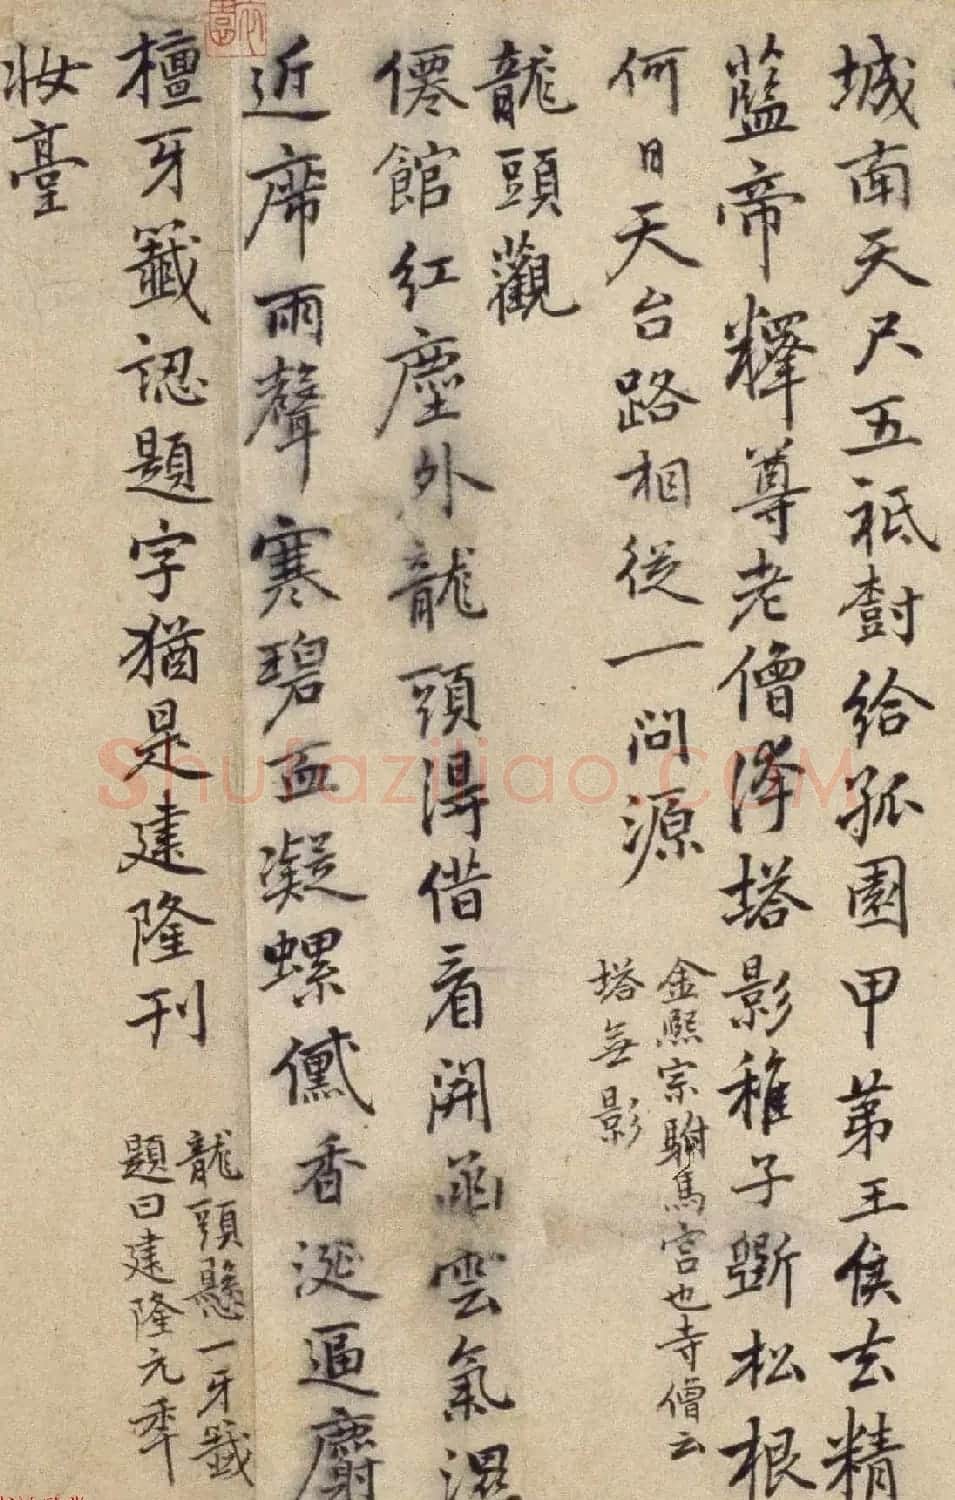 城南天尺五祇樹給孤園甲苐王侯去精
藍帝釋尊老僧塔影稚子松根
何日天台路相從一問源
金熙宗駙馬宮也寺僧云
塔無影
龍頭觀
僊館紅塵外龍頭得借看開函雲氣濕
近席雨聲寒碧血凝螺香涎逼麝
檀牙籤認題字猶是建隆刊
龍頭懸一牙籤
題曰建隆元年
妝臺
shufaziliao.COM